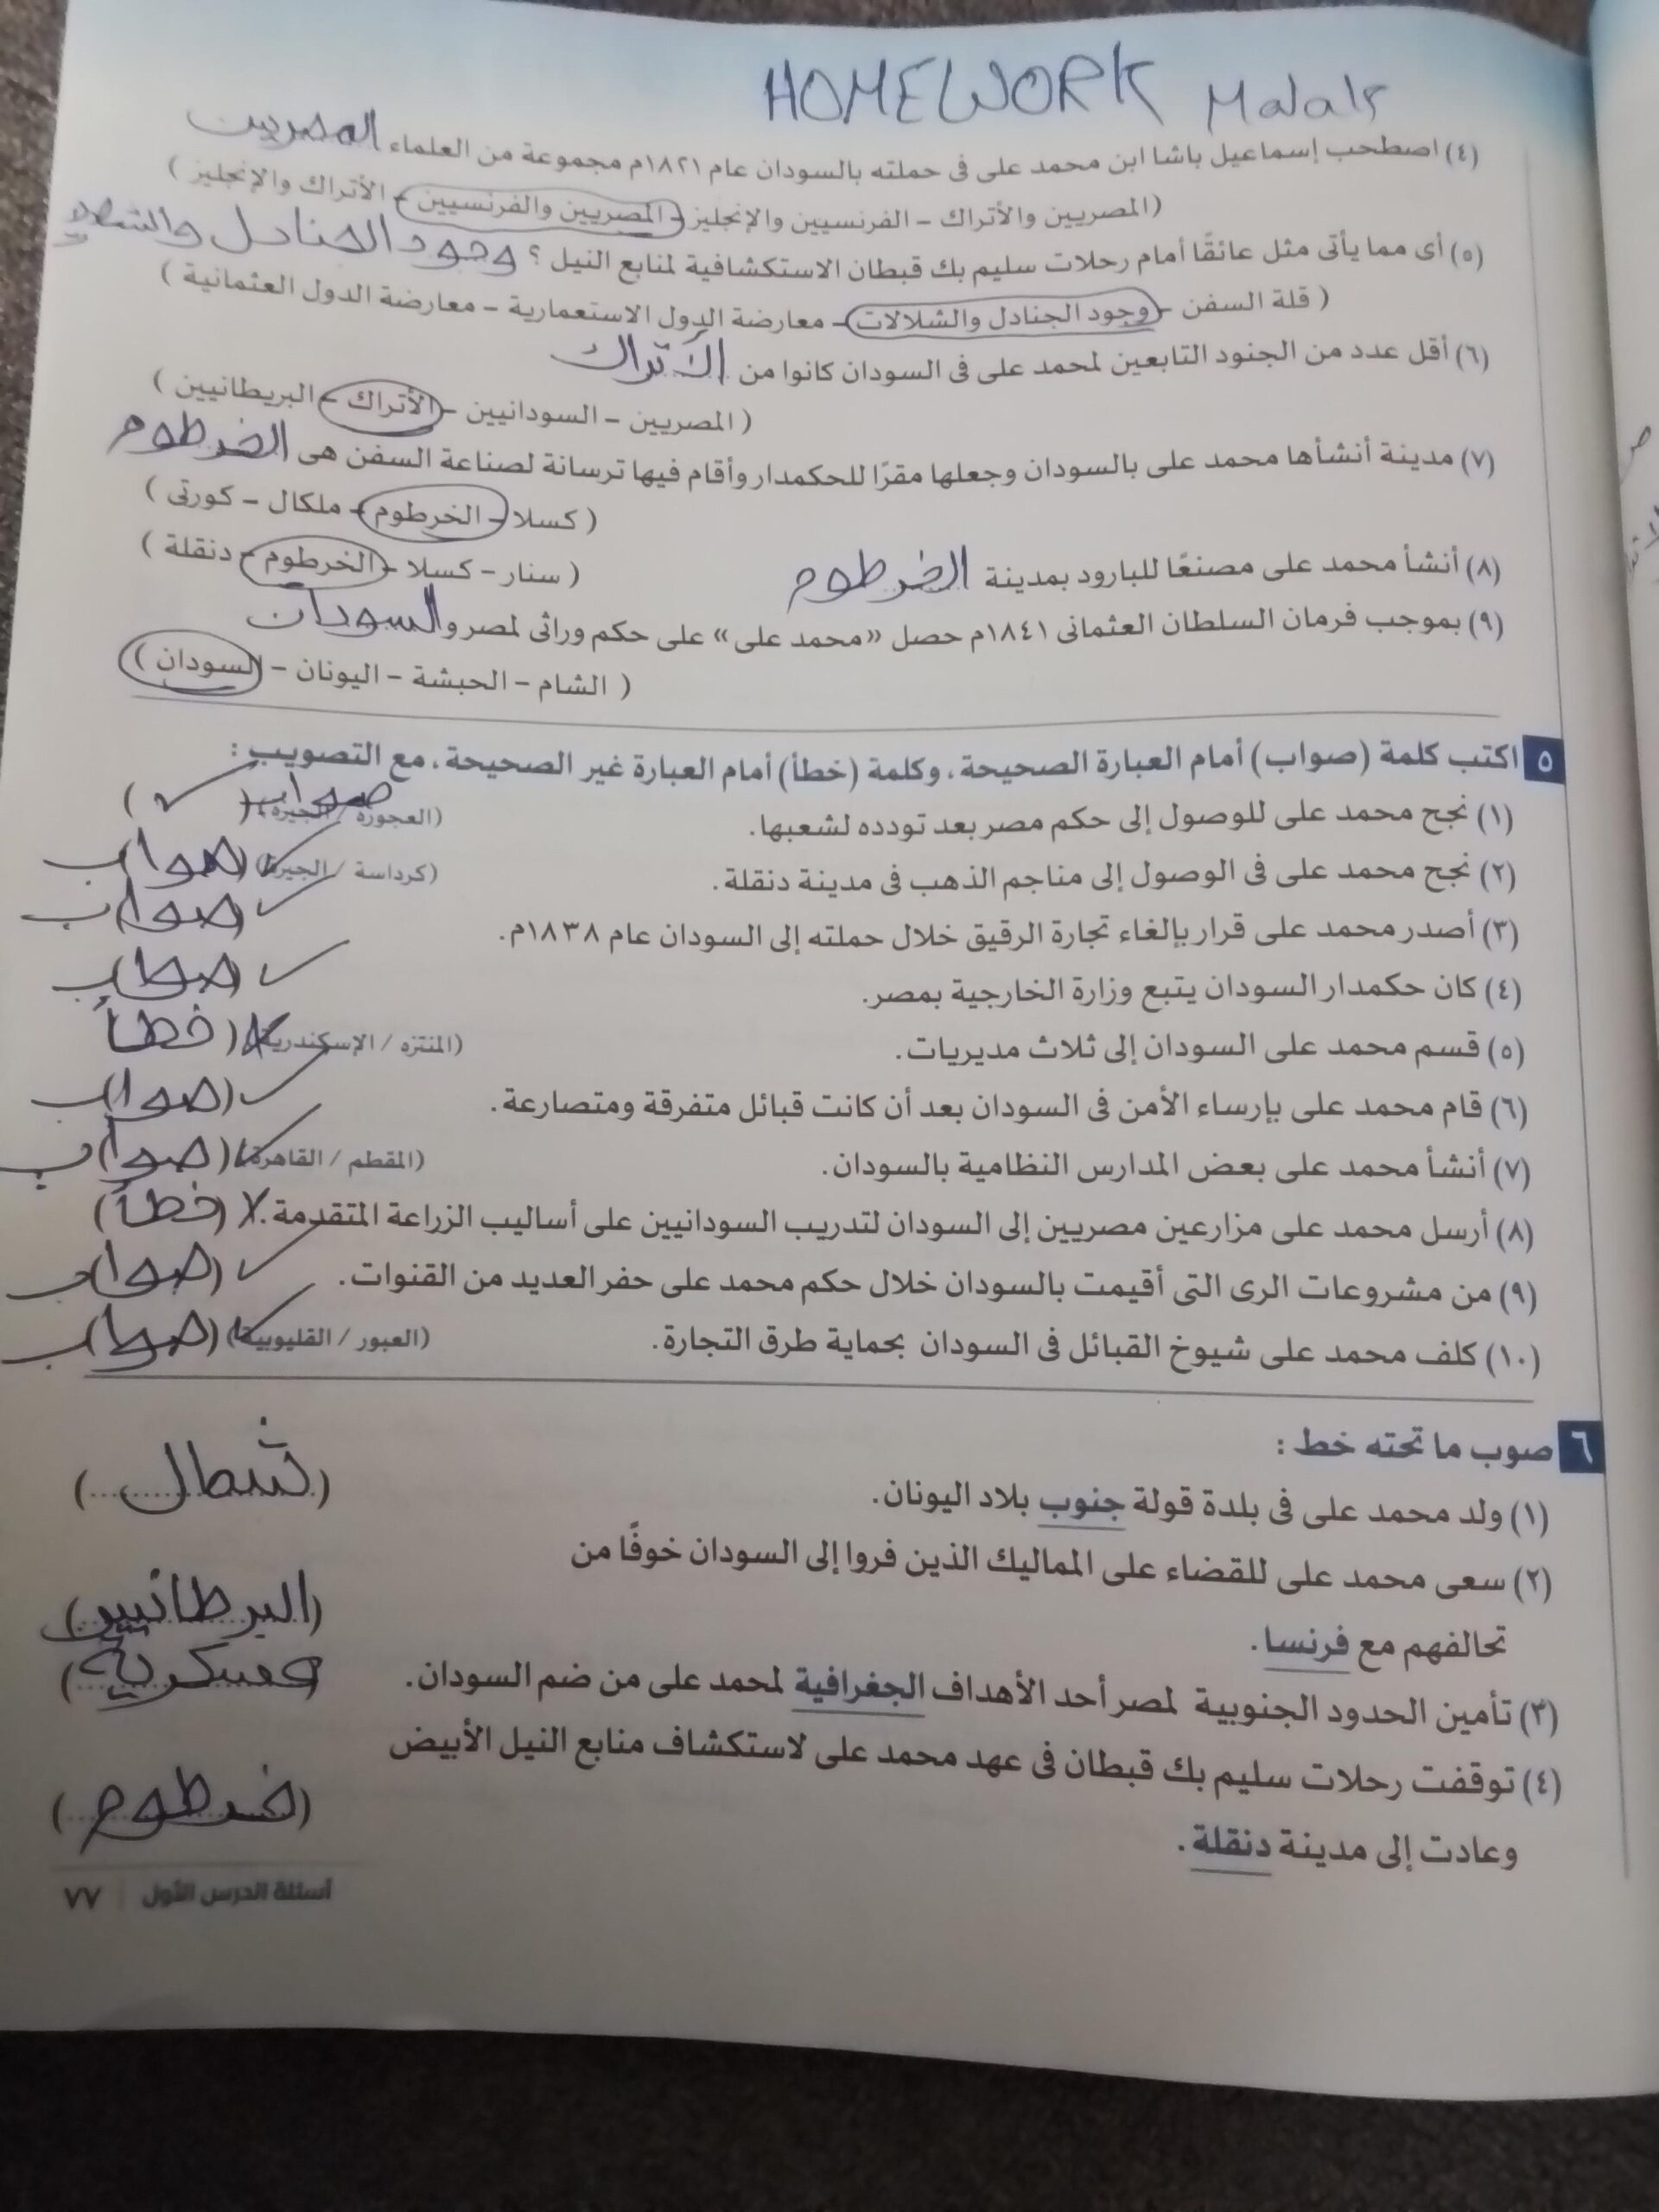 HOMEWORK Malak
(٤) اصطحب إسماعيل باشا ابن محمد على فى حملته بالسودان عام ١٨٢١م مجموعة من العلماء المصريين
(المصريين والأتراك - الفرنسيين والإنجليز - المصريين والفرنسيين - الأتراك والإنجليز)
(٥) أى مما يأتى مثل عائقًا أمام رحلات سليم بك قبطان الاستكشافية لمنابع النيل ؟ وجود الجنادل
(قلة السفن - وجود الجنادل والشلالات - معارضة الدول الاستعمارية - معارضة الدول العثمانية)
(٦) أقل عدد من الجنود التابعين لمحمد على فى السودان كانوا من الأتراك
(المصريين - السودانيين - الأتراك - البريطانيين)
(٧) مدينة أنشأها محمد على بالسودان وجعلها مقرًا للحكمدار وأقام فيها ترسانة لصناعة السفن هى الخرطوم
(كسلا - الخرطوم - ملكال - كورتى)
(٨) أنشأ محمد على مصنعًا للبارود بمدينة الخرطوم (سنار - كسلا - الخرطوم - دنقلة)
(٩) بموجب فرمان السلطان العثمانى ١٨٤١م حصل «محمد على» على حكم وراثى لمصر والسودان
(الشام - الحبشة - اليونان - السودان)
٥ اكتب كلمة (صواب) أمام العبارة الصحيحة، وكلمة (خطأ) أمام العبارة غير الصحيحة، مع التصويب :
(١) نجح محمد على للوصول إلى حكم مصر بعد تودده لشعبها. (العجوزة / الجيزة) صواب ( ✓ )
(٢) نجح محمد على فى الوصول إلى مناجم الذهب فى مدينة دنقلة. (كرداسة / الجيزة) ✓ (صواب)
(٣) أصدر محمد على قرار بإلغاء تجارة الرقيق خلال حملته إلى السودان عام ١٨٣٨م. ✓ (صواب)
(٤) كان حكمدار السودان يتبع وزارة الخارجية بمصر. ✓
(٥) قسم محمد على السودان إلى ثلاث مديريات. (المنتزه / الإسكندرية) X (خطأ)
(٦) قام محمد على بإرساء الأمن فى السودان بعد أن كانت قبائل متفرقة ومتصارعة. ✓ (صواب)
(٧) أنشأ محمد على بعض المدارس النظامية بالسودان. (المقطم / القاهرة) ✓ (صواب)
(٨) أرسل محمد على مزارعين مصريين إلى السودان لتدريب السودانيين على أساليب الزراعة المتقدمة. X (خطأ)
(٩) من مشروعات الرى التى أقيمت بالسودان خلال حكم محمد على حفر العديد من القنوات. ✓ (صواب)
(١٠) كلف محمد على شيوخ القبائل فى السودان بحماية طرق التجارة. (العبور / القليوبية) ✓ (صواب)
٦ صوب ما تحته خط :
(١) ولد محمد على فى بلدة قولة جنوب بلاد اليونان. (شمال)
(٢) سعى محمد على للقضاء على المماليك الذين فروا إلى السودان خوفًا من
تحالفهم مع فرنسا. (البرطانيين)
(٣) تأمين الحدود الجنوبية لمصر أحد الأهداف الجغرافية لمحمد على من ضم السودان. (عسكرية)
(٤) توقفت رحلات سليم بك قبطان فى عهد محمد على لاستكشاف منابع النيل الأبيض
وعادت إلى مدينة دنقلة. (خرطوم)
أسئلة الدرس الأول | ٧٧